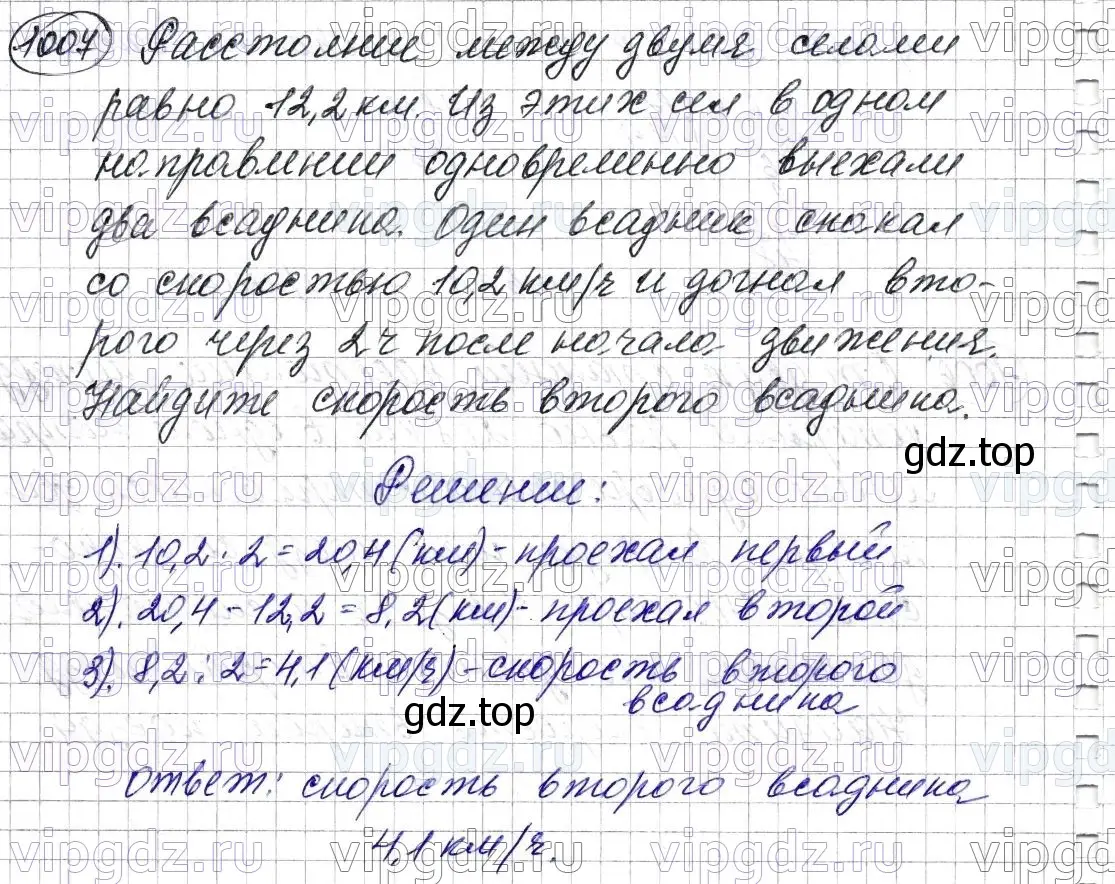 1007 Расстояние между двумя селами
равно 12,2 км. Из этих сел в одном
направлении одновременно выехали
два всадника. Один всадник скакал
со скоростью 10,2 км/ч и догнал вто-
рого через 2 ч после начала движения.
Найдите скорость второго всадника.
gdz.top
Решение:
1). 10,2 · 2 = 20,4 (км) - проехал первый
2). 20,4 - 12,2 = 8,2 (км) - проехал второй
3). 8,2 : 2 = 4,1 (км/ч) - скорость второго
всадника
gdz.top
Ответ: скорость второго всадника
4,1 км/ч.